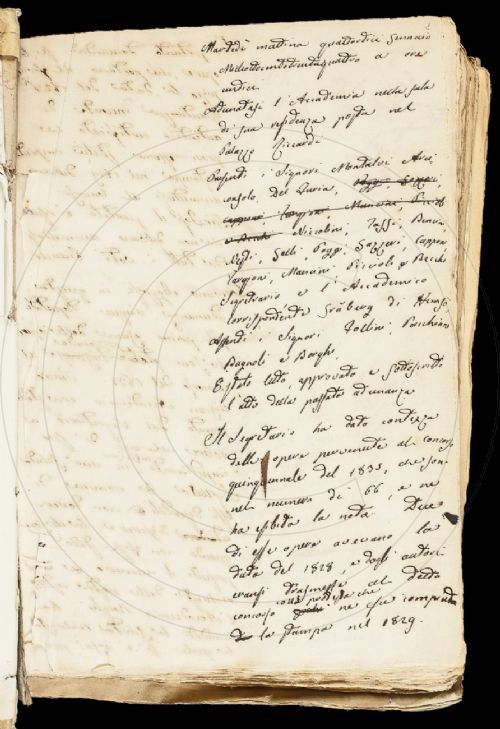 Martedì mattina quattordici Gennaio
Milleottocentotrentaquattro a ore
undici.
Adunatasi l'Accademia nella sala
di sua residenza posta nel
Palazzo Riccardi
Presenti i Signori Montalvi Arci
consolo, Del Furia, Poggi, Gazzeri,
Capponi Targioni, Mancini, Piccioli
e Becchi Niccolini, Tassi, Bencini,
Nesti, Gelli, Poggi, Gazzeri, Capponi
Targioni, Mancini, Piccioli e Becchi
Segretario e l'Accademico
corrispondente Gråberg di Hemsö
Assenti i Signori Collini, Borchini
Bagnoli e Borghi.
È stato letto, approvato e sottoscritto
l'atto della passata adunanza
Il Segretario ha dato contezza
delle opere pervenute al concorso
quinquennale del 1833, che sono
nel numero di 66, e ne
ha esibito la nota. Due
di esse opere avevano la
data del 1828, e dagli autori
eransi trasmesse al detto
concorso colla protesta che ne fu compiuta
la stampa nel 1829.